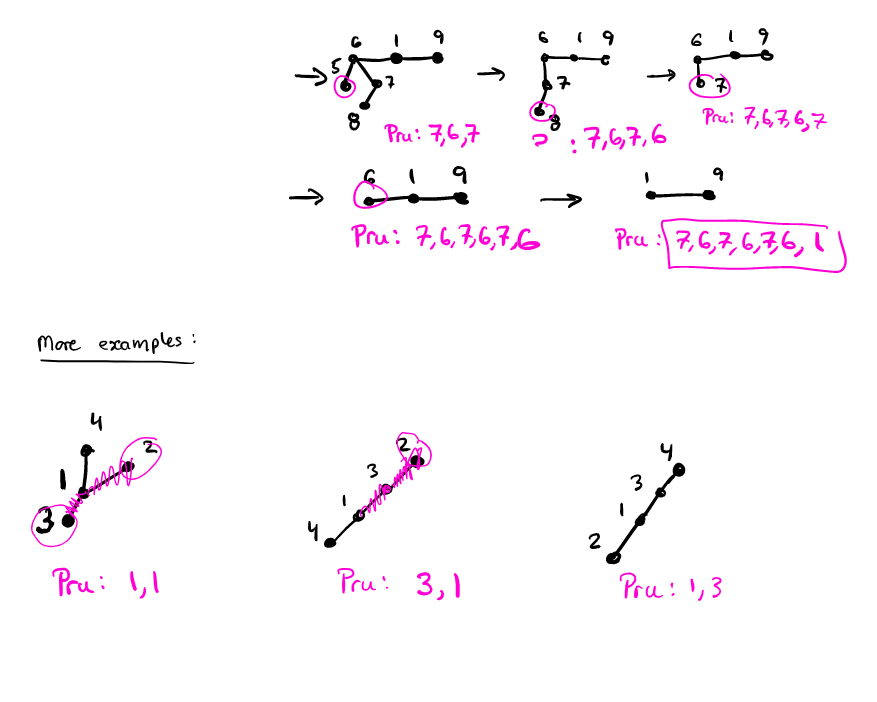 6 1 9
5
7
8
Pru: 7,6,7
6 1 9
7
8
: 7,6,7,6
6 1 9
7
Pru: 7,6,7,6,7
6 1 9
Pru: 7,6,7,6,7,6
1 9
Pru: 7,6,7,6,7,6,1
More examples:
4
2
1
3
Pru: 1,1
2
3
1
4
Pru: 3,1
4
3
1
2
Pru: 1,3